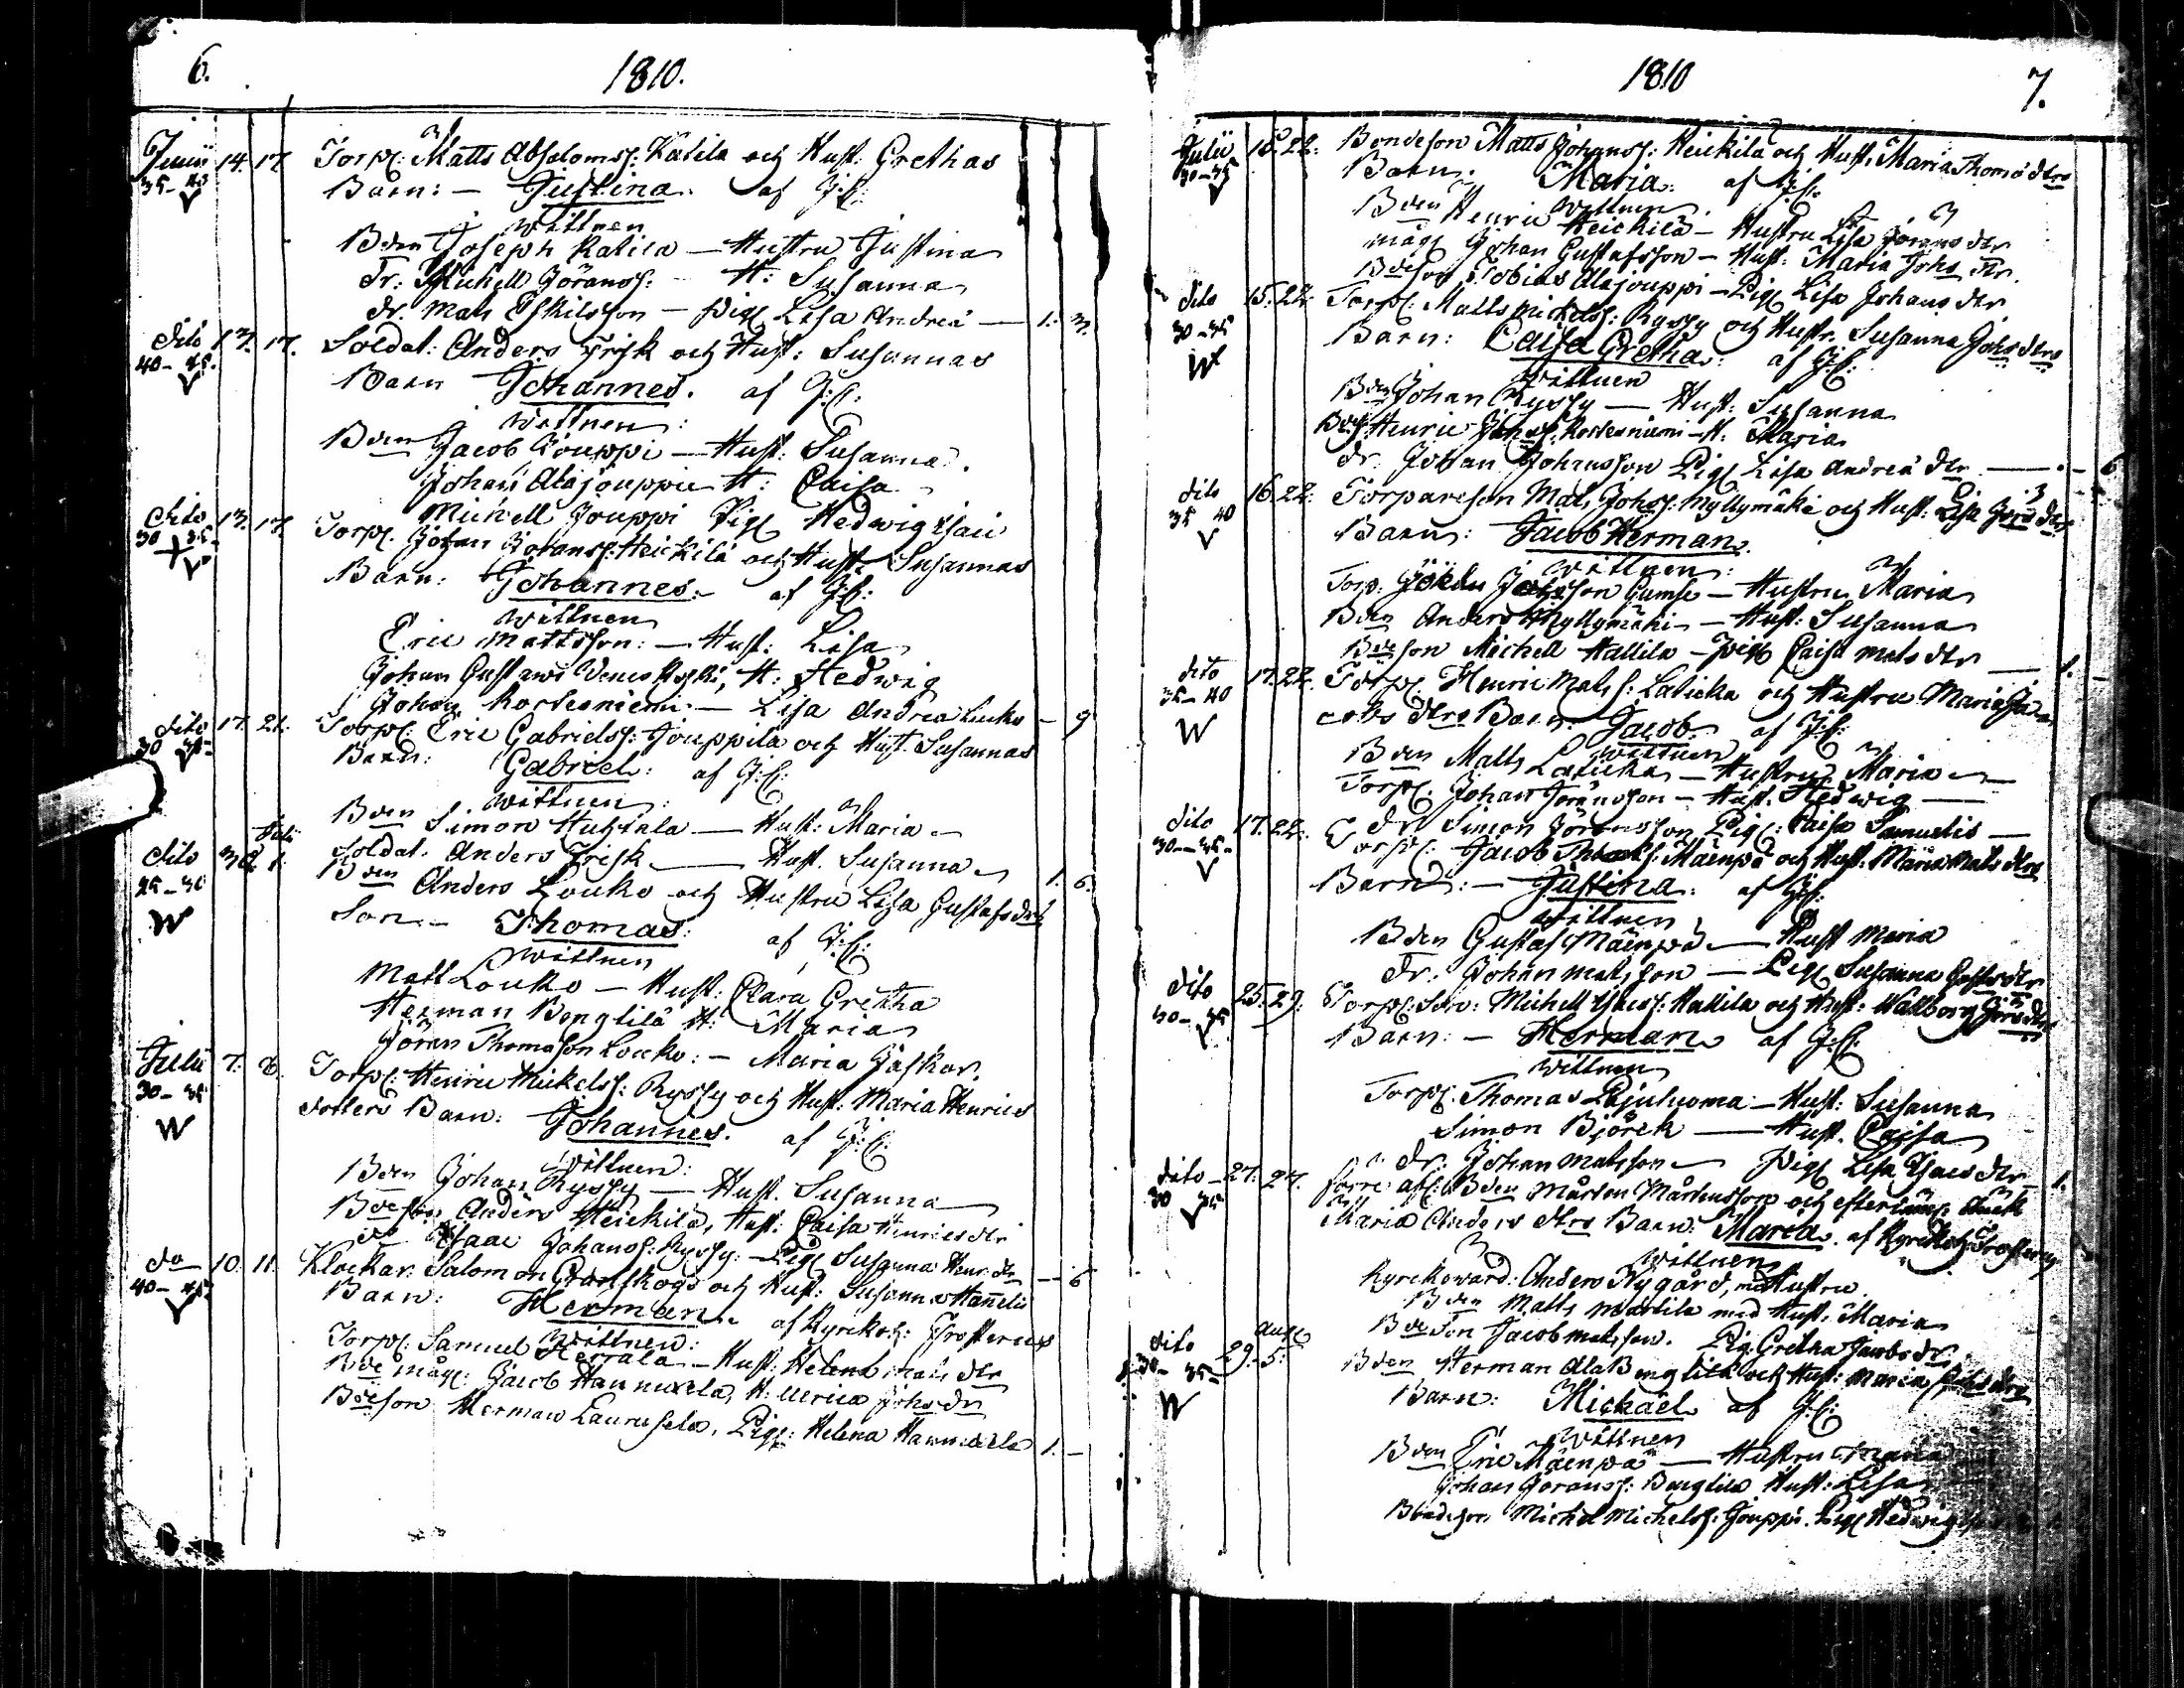 6.
1810.
Junii 14. 17. Torp: Matts Absoloms: Katila och Hust: Grethas
35-40 Barn: - Justina. af J:C:
V
Wittnen
Bden Joseph Katila - Hustru Justina
Dr. Michell Jöranss: - H: Susanna
dr. Mats Eskilsson - Pig: Lisa Andreä - 1. 3.
dito 13. 17. Soldat: Anders Frisk och Hust: Susannas
40-45. Barn Johannes. af J:C:
V
Wittnen:
Bden Jacob Jouppi - Hust: Susanna.
Johan Alajouppi H: Caisa
Michell Jouppi Pig: Hedwig Isaci
dito 13. 17. Torp: Johan Johanss: Heickilä och Hust: Susannas
30 35. Barn: Johannes. af J:C:
V
Wittnen
Eric Mattsson: - Hust: Lisa
Johan Gustaws H: Hedwig
Johan Kortesniemi - Lisa Andrea Luoko - 9
dito 17. 21. Torp: Eric Gabrielss: Jouppila och Hust. Susannas
30 Barn: Gabriel: af J:C:
Wittnen:
Bden Simon Huhtala - Hust: Maria -
Soldat. Anders Frisk - Hust. Susanna 1. 6.
Julii
dito 30. 1. Bden Anders Louko och Hustru Lisa Gustafs dr
25-30 Son - Thomas: af J:C:
W
Wittnen
Matt Louko - Hust: Clara Gretha
Herman Benglilä H: Maria
Jöran Thomasson Louko: - Maria Jaskar.
Julii 7. 8. Torp: Henric Mickelss: Ryssy och Hust: Maria Henrics
30-35 dotters Barn: Johannes. af J:C:
W
Wittnen:
Bden Johan Ryssy - Hust. Susanna
Bdeson Anders Heickilä, Hust: Caisa Henrics dr
Isaac Johanss: Ryssy: - Pig: Susanna Henr: dr - 6
do 10. 11. Klockar: Salomon Granskogs och Hust: Susanna Hannelis
40-45 Barn: Herman. af Kyrckoh: Frosterus
V
Wittnen:
Torp: Samuel Herrala - Hust: Helena Mats dr
Bde måg: Jacob Hannuxela, H: Ulrica Johs dr
Bdeson Herman Laurusela, Pig: Helena Hannuxela 1. -
1810
7.
Julii 15. 22. Bondeson Matts Johanss: Heickilä och Hust: Maria Thomä dtrs
30-35 Barn. Maria: af J:C:
V
Wittnen
Bden Henric Heickilä - Hustru Lisa Jörans dtr
måg Johan Gustafsson - Hust: Maria Johs dtr.
Bdeson Tobias Alajouppi - Pig: Lisa Johans dtr
dito 15. 22. Torp: Matts Mickelss: Ryssy och Hustr. Susanna Johs dtrs
30-35 Barn: Caisa Gretha: af J:C:
W
Wittnen
Bden Johan Ryssy - Hust: Susanna
Bdes: Henric Johss: Kortesniemi - H: Maria
Dr. Johan Johansson Pig: Lisa Andreä dtr - 6
dito 16. 22. Torpareson Mats Johss: Myllymäki och Hust: Lisa Jörs dtrs
35 40 Barn: Jacob Herman.
V
Wittnen:
Torp: Gumse - Hustru Maria
Bden Anders Myllymäki - Hust: Susanna
Bdeson Michell Hallila - Pig: Caisa Mats dtr - 1.
dito 17. 22. Torp: Henric Matss: Laticka och Hustru Maria Ja-
35-40 cobs dtrs Barn. Jacob. af J:C:
W
Wittnen
Bden Matts Laticka - Hustru Maria -
Torp: Johan Jöransson - Hust. Hedwig -
Dr. Simon Jöransson Pig: Caisa Samuelis -
dito 17. 22. Torp: Jacob Mäenpä och Hust: Maria Mats dtrs
30-35. Barn: - Justina: af J:C:
V
Wittnen
Bden Gustaf Mäenpä - Hust Maria
Dr. Johan Matsson - Pig: Susanna dtr
dito 25. 29. Torp: Son: Michell Isacss: Hallila och Hust: Wallborg Jörs dtrs
30-35 Barn: - Herman af J:C:
V
Wittnen
Torp: Thomas Pajuluoma - Hust: Susanna
Simon Björck - Hust. Caisa
Dr. Johan Matsson - Pig: Lisa Isacs dtr - 1.
dito - 27. 27. förre Bden Mårten Mårtensson och
30 35 Maria Anders dtrs Barn: Marta. af Kyrckoh: Frosterus
Wittnen
Kyrckoward: Anders Nygård, med Hustru
Bden Matts Martila med Hust: Maria
Bdeson Jacob Matsson. Pig: Gretha Jacobs dr.
Aug:
dito 29. 5. Bden Herman AlaBenglilä och Hust: Maria
30- 35- Barn: Mickael af J:C:
W
Wittnen
Bden Eric Mäenpää - Hustru Maria
Johan Jöranss: Benglilä Hust: Lisa
Bondeson Michel Michelss: Jouppi. Pig: Hedwig